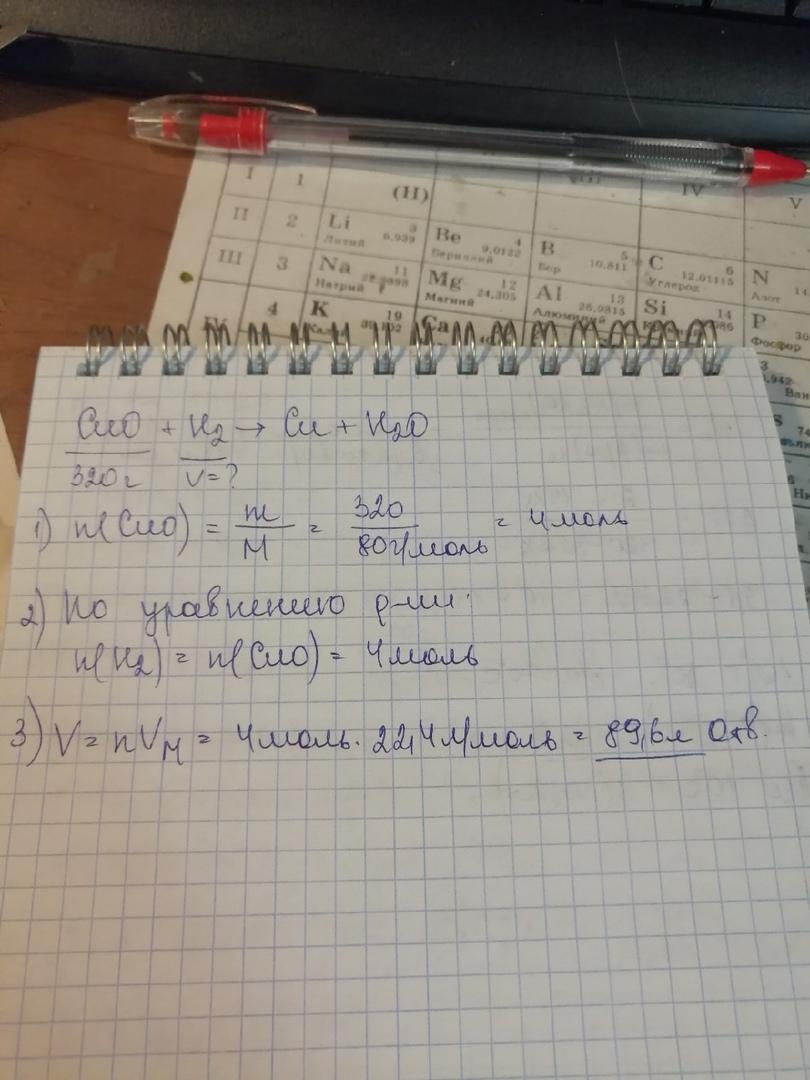 I 1 (H) IV V
II 2 Li 3 Литий 6,939 Be 4 Бериллий 9,0122 B 5 Бор 10,811 C 6 Углерод 12,01115 N Азот 14
III 3 Na 11 Натрий Mg 12 Магний 24,305 Al 13 Алюминий 26,9815 Si 14 P Фосфор 30
IV 4 K 19 Ca
CuO + H2 → Cu + H2O
320г V=?
1) n(CuO) = m/M = 320/80г/моль = 4моль
2) По уравнению р-ии:
n(H2) = n(CuO) = 4моль
3) V = nVM = 4моль · 22,4л/моль = 89,6л Отв.